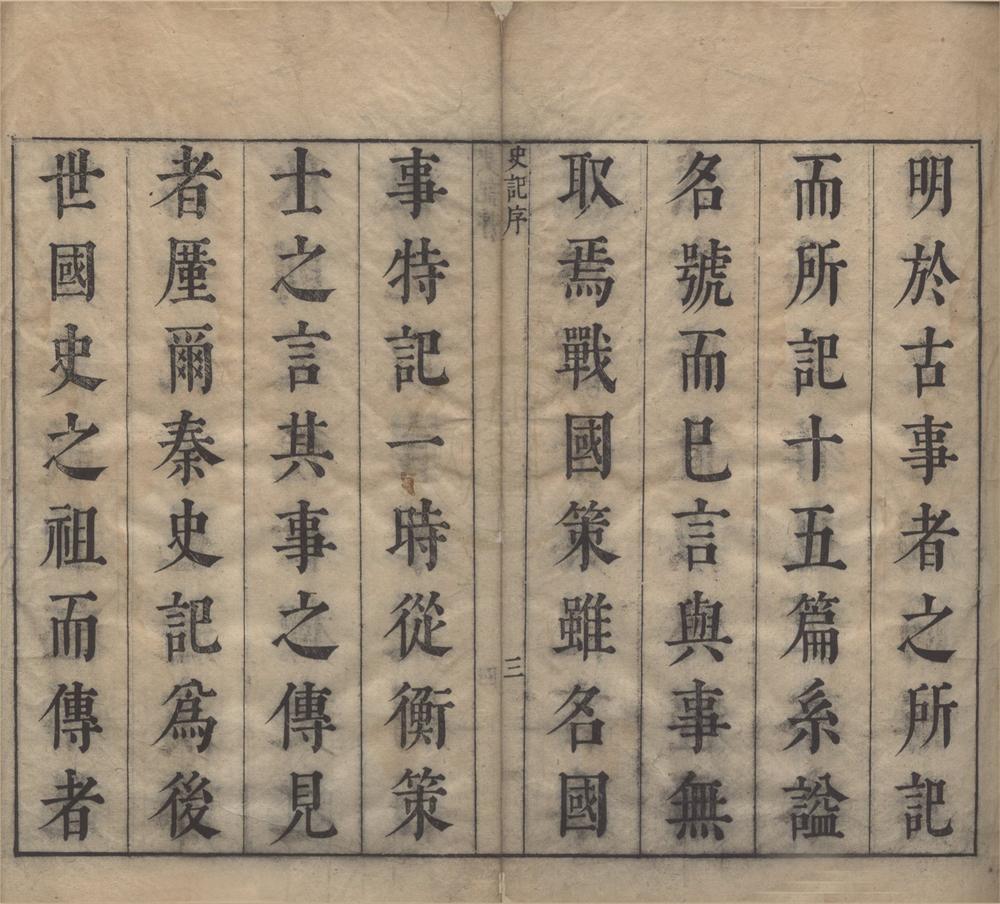 明於古事者之所記
而所記十五篇系謚
名號而已言與事無
取焉戰國策雖名國
史記序
三
事特記一時從衡策
士之言其事之傳見
者厪爾秦史記爲後
世國史之祖而傳者